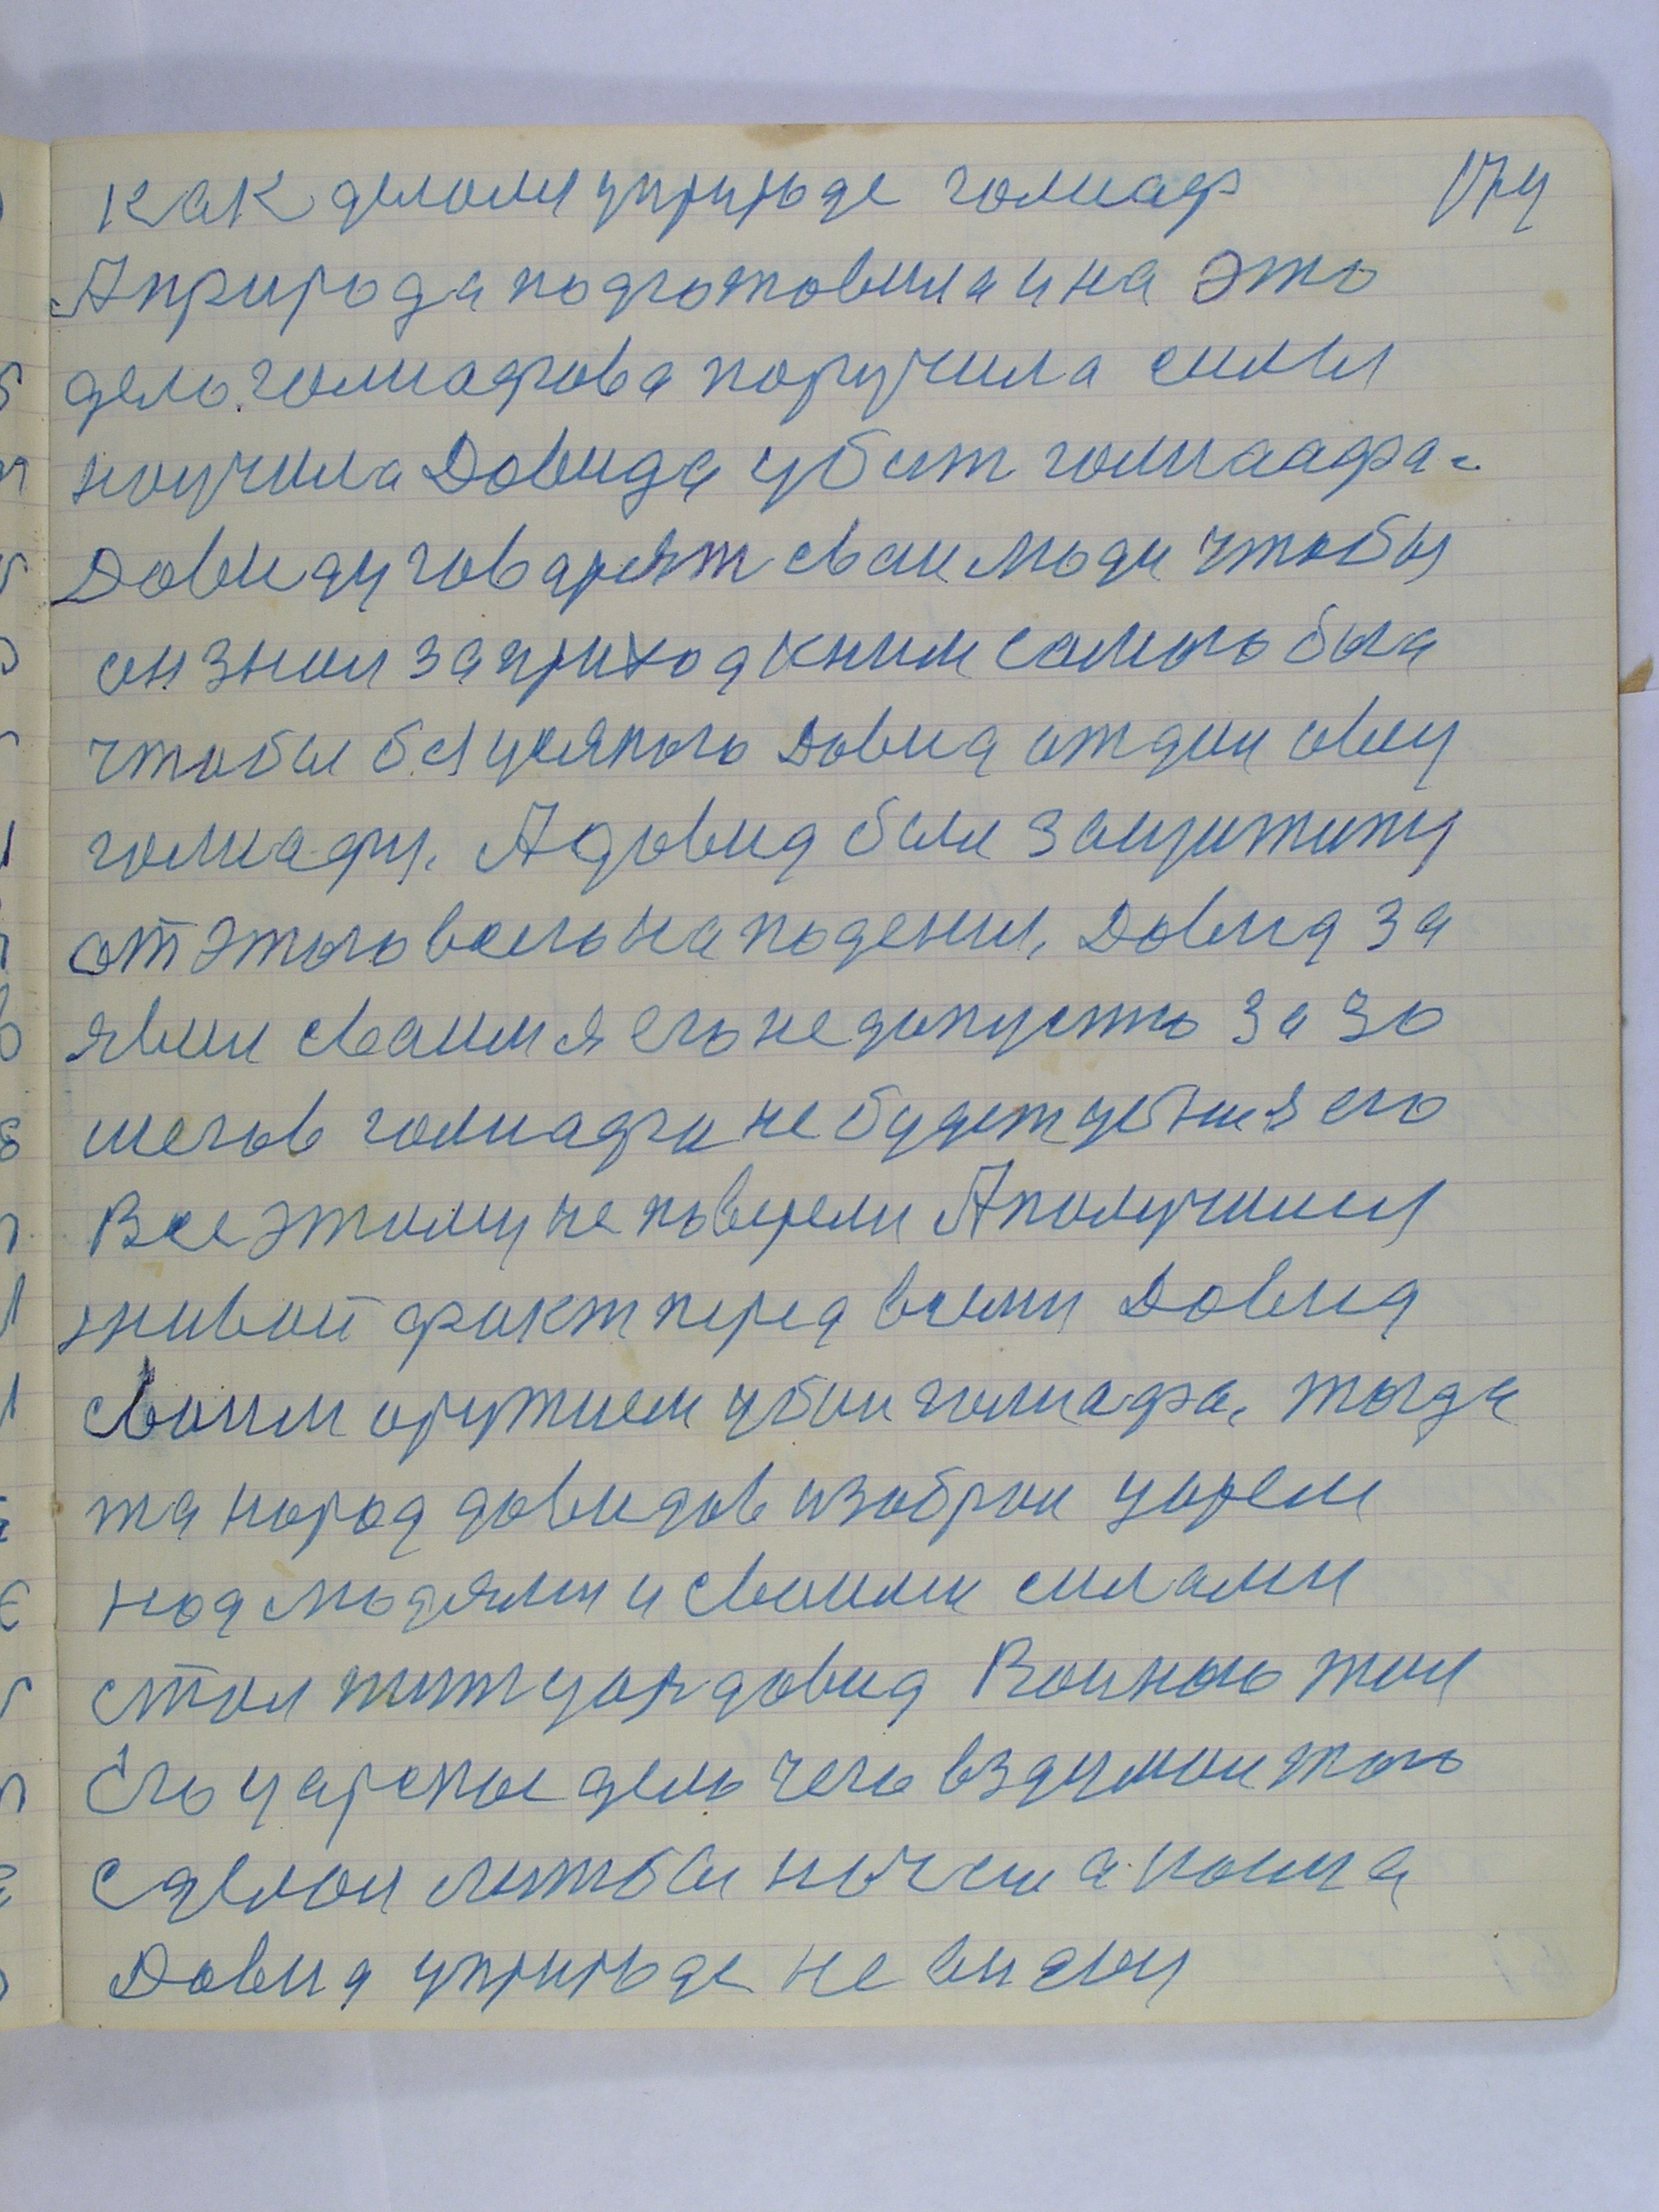 как делали уприроде голиаф 174
А природа подготовила и на это
дело голиафова поручила силы
научила Довида убит голиаафа.
Довиду говарят сваи люди чтобы
он знал заприход кним самого быка
чтобы бы усякого Довид отдал овцу
голиафу. А довид были защитику
от этого всего нападения, Довид за
явил сваим я его недопустю за 30
шегов голиафа не будет убию я его
Все этому не поверели А получился
живой факт перед всеми Довид
своим оружием убил голиафа. тогда
та народ довидов избрал царем
над людями и своими силами
стал жит царь довид Военого тил
Его царское дело чего вздумал того
сделал литбы ночем а наша
Довид уприроде не виду